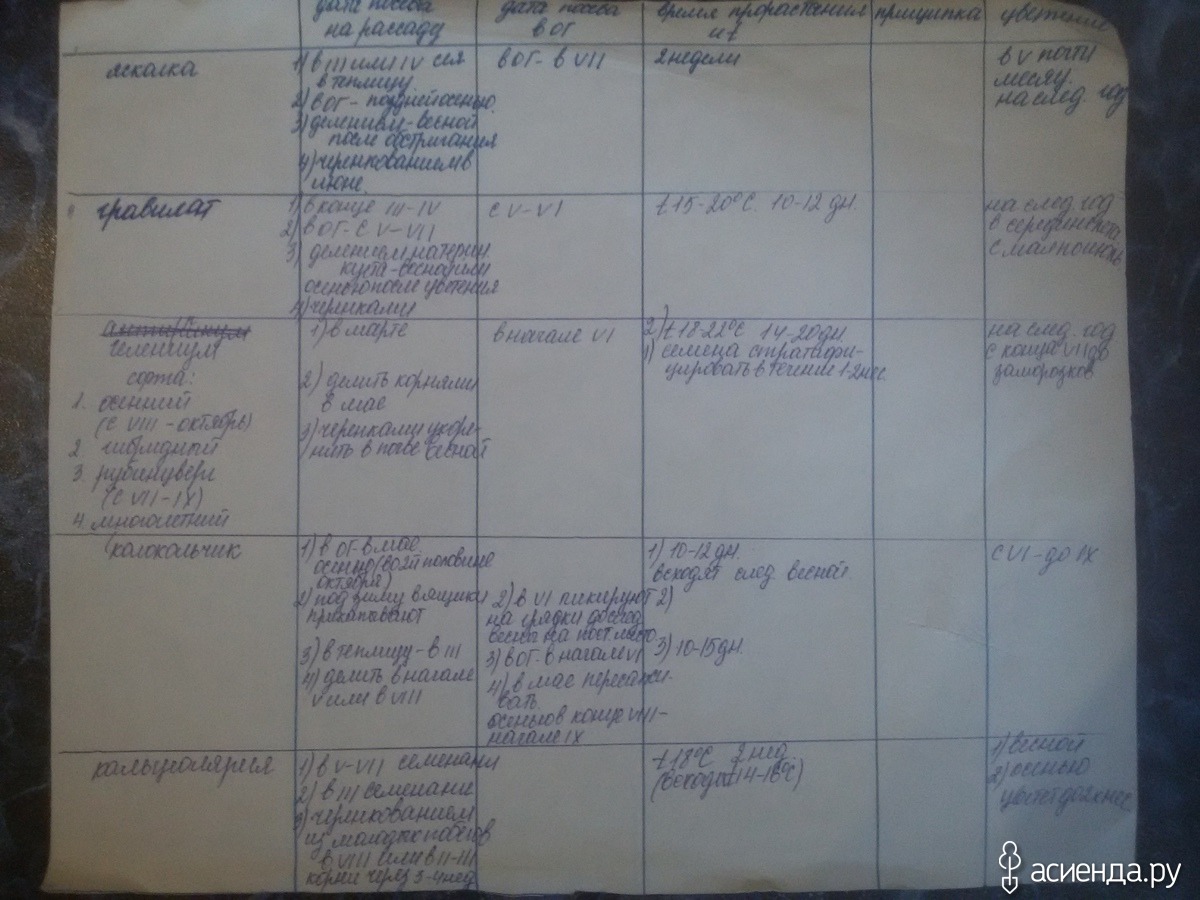 дата посева
на рассаду
дата посева
в ОГ
время прорастания
и t
прищипка
цветение
ясколка
1) в III или IV сев
в теплицу
2) в ОГ - поздней осенью
3) делением - весной
после обстригания
4) черенкованием в
июне.
в ОГ - в VII
2 недели
в V почти
месяц.
на след. год
гравилат
1) в конце III-IV
2) в ОГ - с V-VII
3) делением материн.
куста - весной или
осенью после цветения
4) черенками
с V-VI
t 15-20°C. 10-12 дн.
на след. год
в середине
с мая
антирринум
гелениум
сорта:
1. осенний
(с VIII - октябрь)
2 гибридный
3. рубинцверг
(с VII - IX)
4. многолетний
1) в марте
2) делить корнями
в мае
3) черенками укоре-
нять в почве весной
в начале VI
2) t 18-22°C 14-20 дн.
1) семена стратифи-
цировать в течении 1-2 мес.
на след. год
с конца VII до
заморозков
колокольчик
1) в ОГ в мае,
осенью (во 2й половине
октября)
2) под зиму в ящики
прикапывают
3) в теплицу - в III
4) делить в начале
V или в VIII
2) в VI пикируют
на грядки до след.
весны на пост. место.
3) в ОГ - в начале VI
4) в мае пересажи-
вать.
осенью в конце VIII -
начале IX
1) 10-12 дн.
всходят след. весной
2)
3) 10-15 дн.
с VI - до IX
кальцеолярия
1) в V-VII семенами
2) в III семенами
3) черенкованием
из молодых побегов
в VIII или в II-III
корни через 3-4 нед
t 18°C 2 нед.
(всходы t 14-16°C)
1) весной
2) осенью
цветет до 2х мес.
асиенда.ру